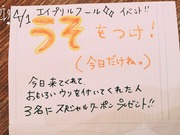 4/1 エイプリルフール イベント!!
うそをつけ!
(今日だけね。)
今日来てくれて、
おもろいウソを付いてくれた人
3名にスペシャルクーポンプレゼント!!